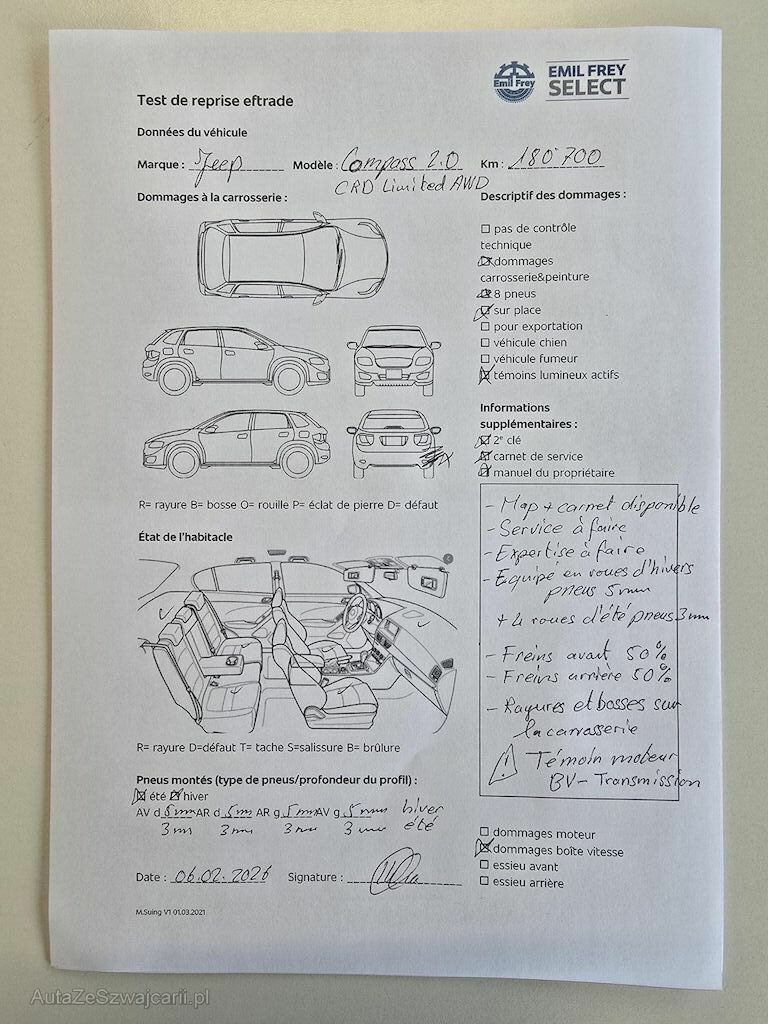 Emil Frey
EMIL FREY
SELECT
Test de reprise eftrade
Données du véhicule
Marque : Jeep Modèle : Compass 2.0 Km : 180'700
CRD Limited AWD
Dommages à la carrosserie :
Descriptif des dommages :
pas de contrôle
technique
dommages
carrosserie&peinture
8 pneus
sur place
pour exportation
véhicule chien
véhicule fumeur
témoins lumineux actifs
Informations
supplémentaires :
2e clé
carnet de service
manuel du propriétaire
R= rayure B= bosse O= rouille P= éclat de pierre D= défaut
État de l'habitacle
- Map + carnet disponible
- Service à faire
- Expertise à faire
- Equipé en roues d'hivers
pneus 5mm
+ 4 roues d'été pneus 3mm
- Freins avant 50%
- Freins arrière 50%
- Rayures et bosses sur
la carrosserie
! Témoin moteur
BV - Transmission
R= rayure D=défaut T= tache S=salissure B= brûlure
Pneus montés (type de pneus/profondeur du profil) :
été hiver
AV d 5mm AR d 5mm AR g 5mm AV g 5mm hiver
3mm 3mm 3mm 3mm été
dommages moteur
dommages boîte vitesse
essieu avant
essieu arrière
Date : 06.02.2026 Signature :
M.Suing V1 01.03.2021
AutaZeSzwajcarii.pl